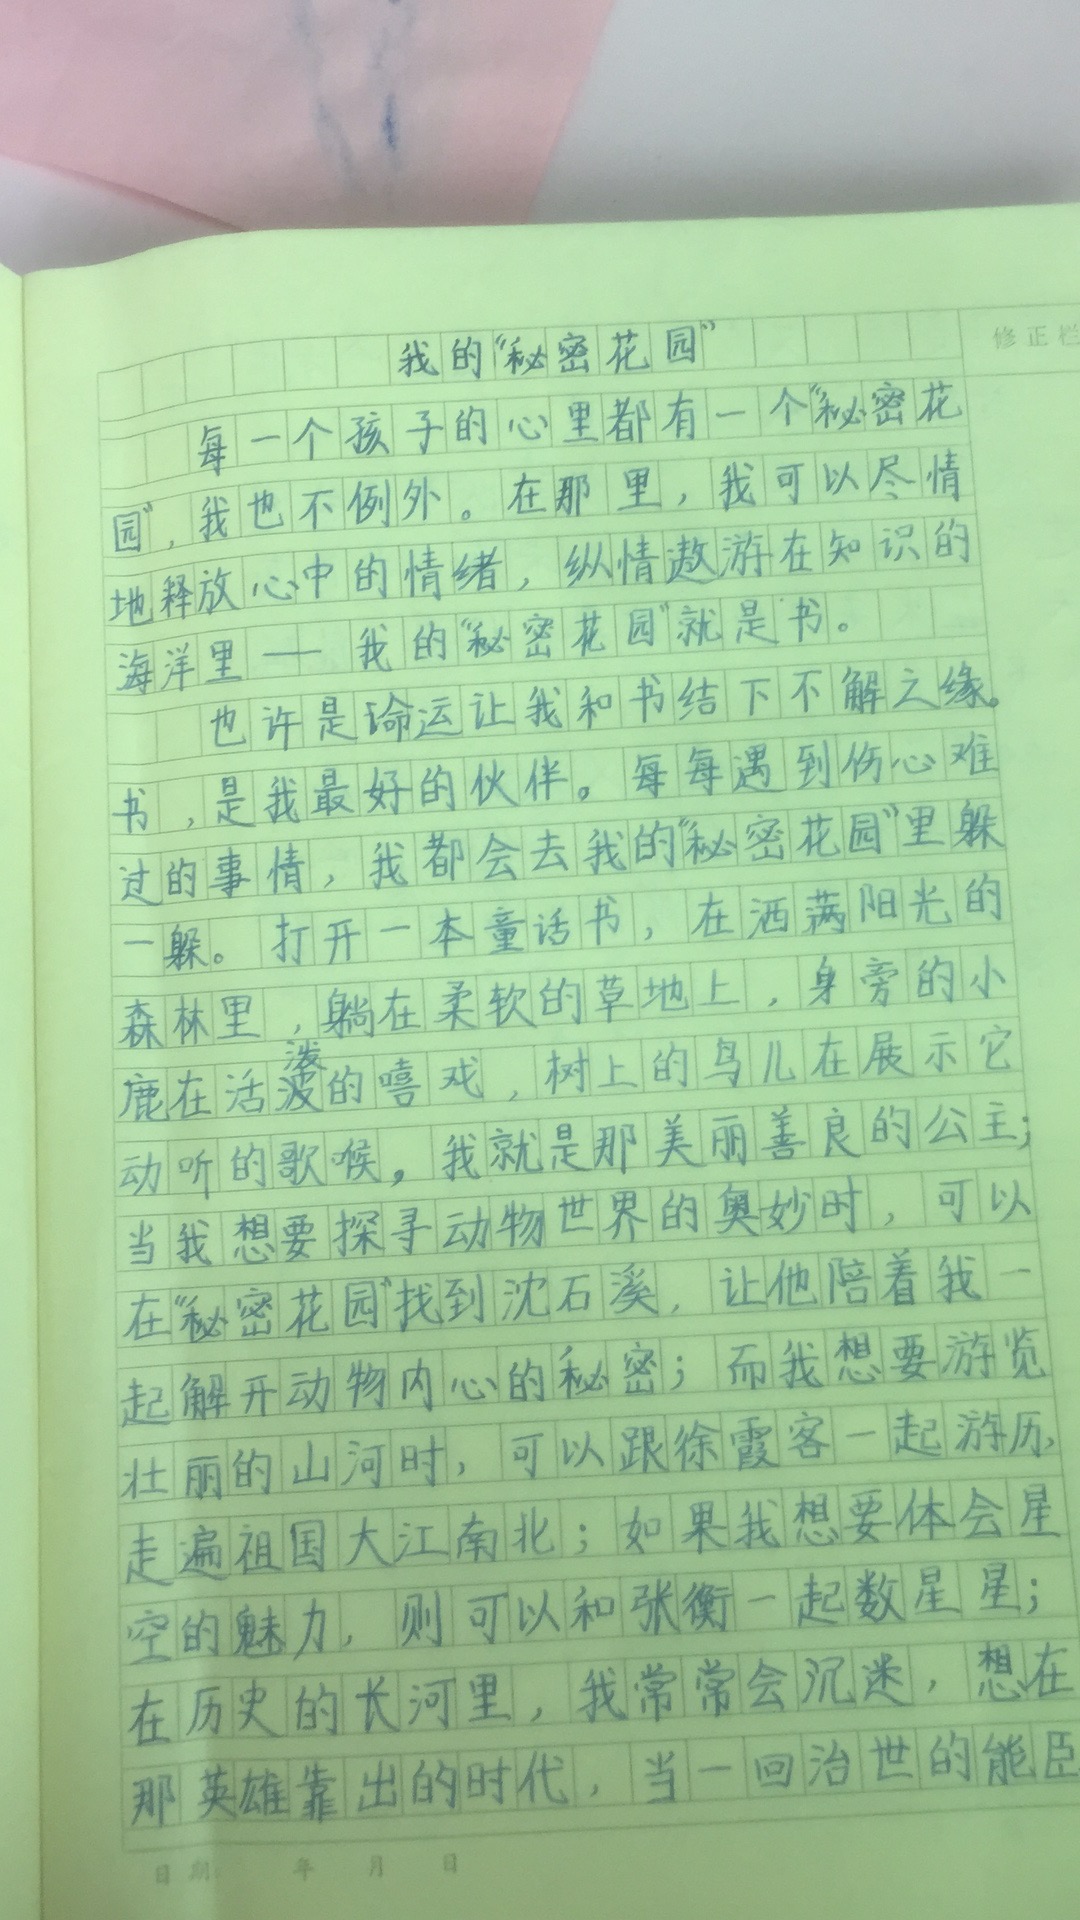 修正栏
我的“秘密花园”
每一个孩子的心里都有一个“秘密花
园”，我也不例外。在那里，我可以尽情
地释放心中的情绪，纵情遨游在知识的
海洋里——我的“秘密花园”就是书。
也许是命运让我和书结下不解之缘。
书，是我最好的伙伴。每每遇到伤心难
过的事情，我都会去我的“秘密花园”里躲
一躲。打开一本童话书，在洒满阳光的
森林里，躺在柔软的草地上，身旁的小
鹿在活泼的嘻戏，树上的鸟儿在展示它
动听的歌喉。我就是那美丽善良的公主；
当我想要探寻动物世界的奥妙时，可以
在“秘密花园”找到沈石溪，让他陪着我一
起解开动物内心的秘密；而我想要游览
壮丽的山河时，可以跟徐霞客一起游历，
走遍祖国大江南北；如果我想要体会星
空的魅力，则可以和张衡一起数星星；
在历史的长河里，我常常会沉迷，想在
那英雄靠出的时代，当一回治世的能臣
日期： 年 月 日